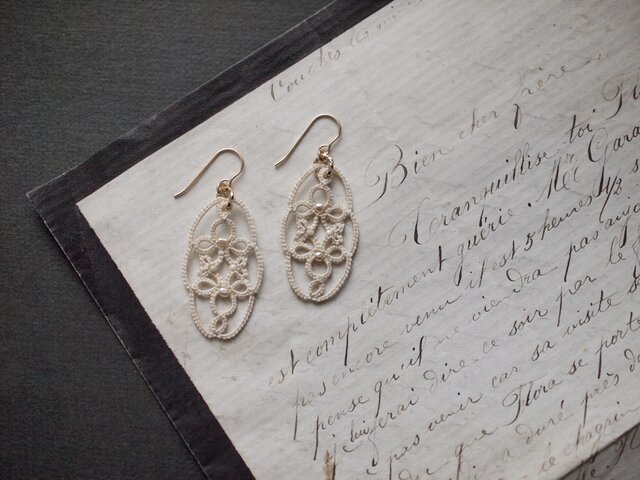 Couches les mi
Bien cher frère,
Tranquillise-toi Fl
est complétement guérie. Mr Gara
pas encore venu il est 5 heures 1/2 s
pense qu'il ne viendra pas aujou
j'lui ferai dire ce soir par le f
pas venir car sa visite s
que Flora se porte
a duré près d
le chagrin